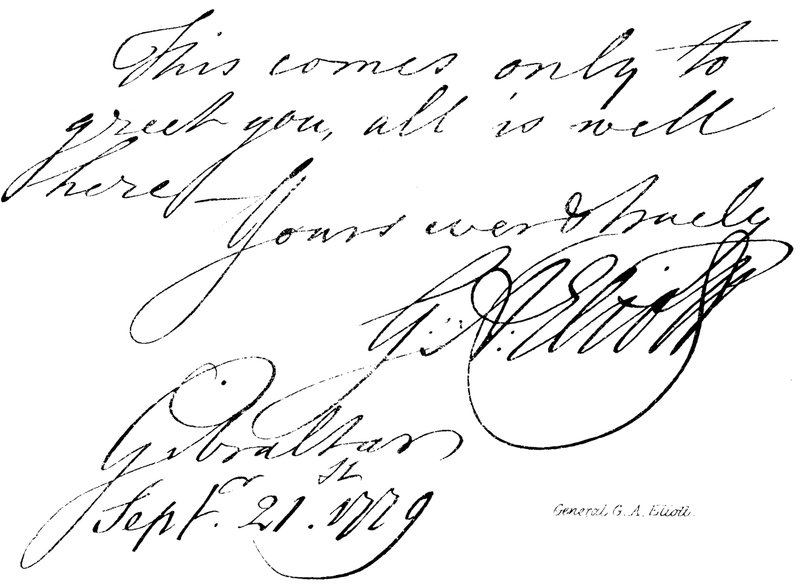 This comes only to
greet you, all is well
here—
Yours ever & truely
G: A: Eliott
Gibraltar
Sept.r 21.st 1779
General, G. A. Eliott.